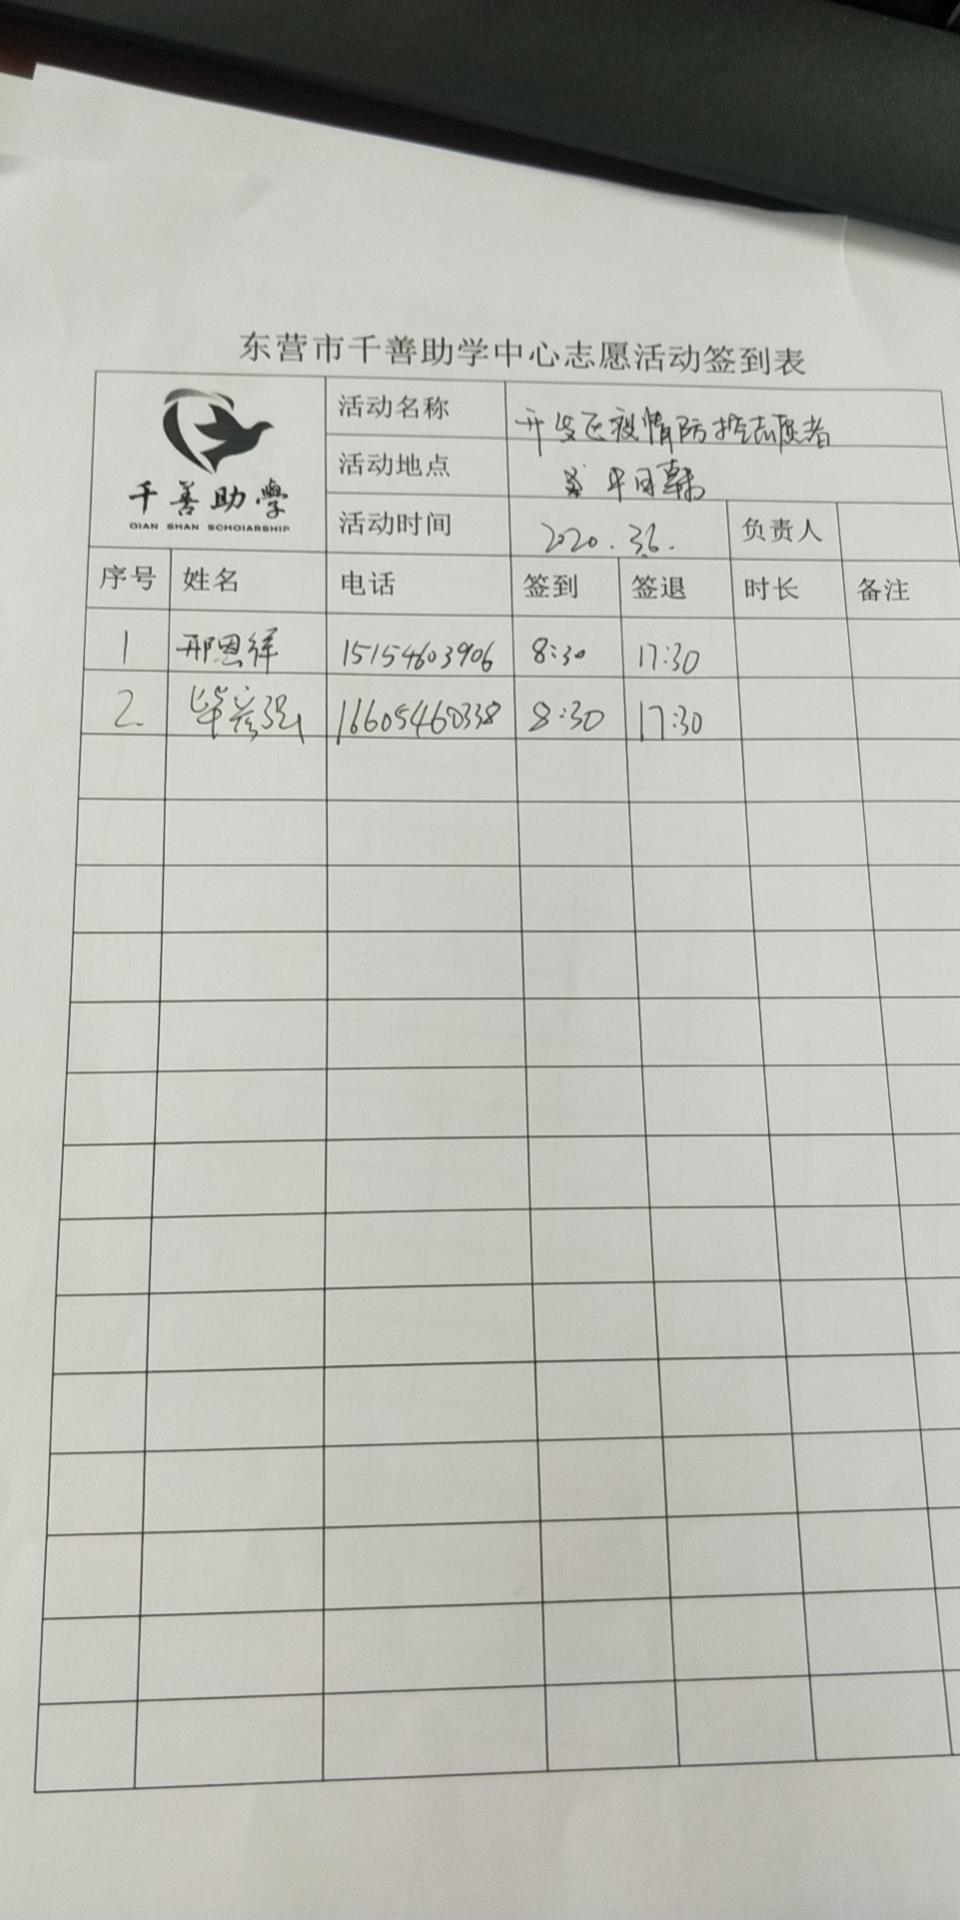 东营市千善助学中心志愿活动签到表
千善助學
QIAN SHAN SCHOIARSHIP
活动名称 开发区疫情防控志愿者
活动地点
活动时间 2020.3.6. 负责人
序号 姓名 电话 签到 签退 时长 备注
1 邢恩祥 15154603906 8:30 17:30
2 毕彦强 16605460338 8:30 17:30